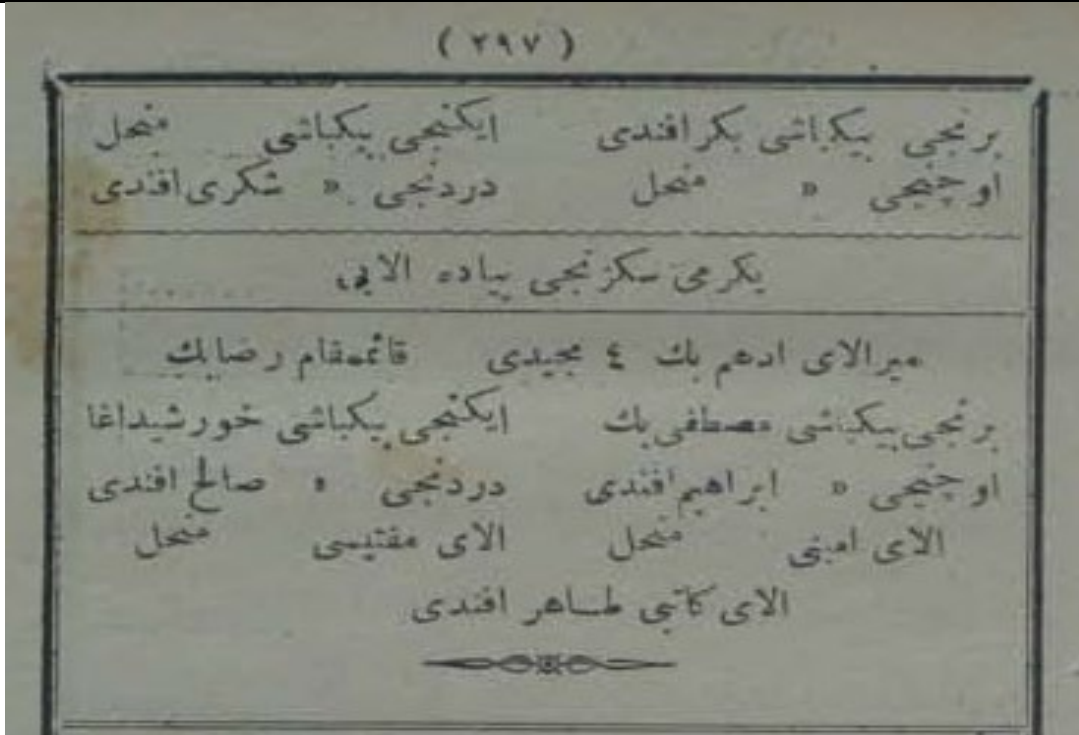 ( ٢٩٧ )
برنجی بیكباشی بكر افندی ایكنجی بیكباشی منحل
اوچنجی » منحل دردنجی » شكری افندی
یكرمی سكزنجی پیاده الایی
میرالای ادهم بك ٤ مجیدی قائممقام رضا بك
برنجی بیكباشی مصطفی بك ایكنجی بیكباشی خورشید اغا
اوچنجی » ابراهیم افندی دردنجی » صالح افندی
الای امینی منحل الای مفتیسی منحل
الای كاتبی طاهر افندی